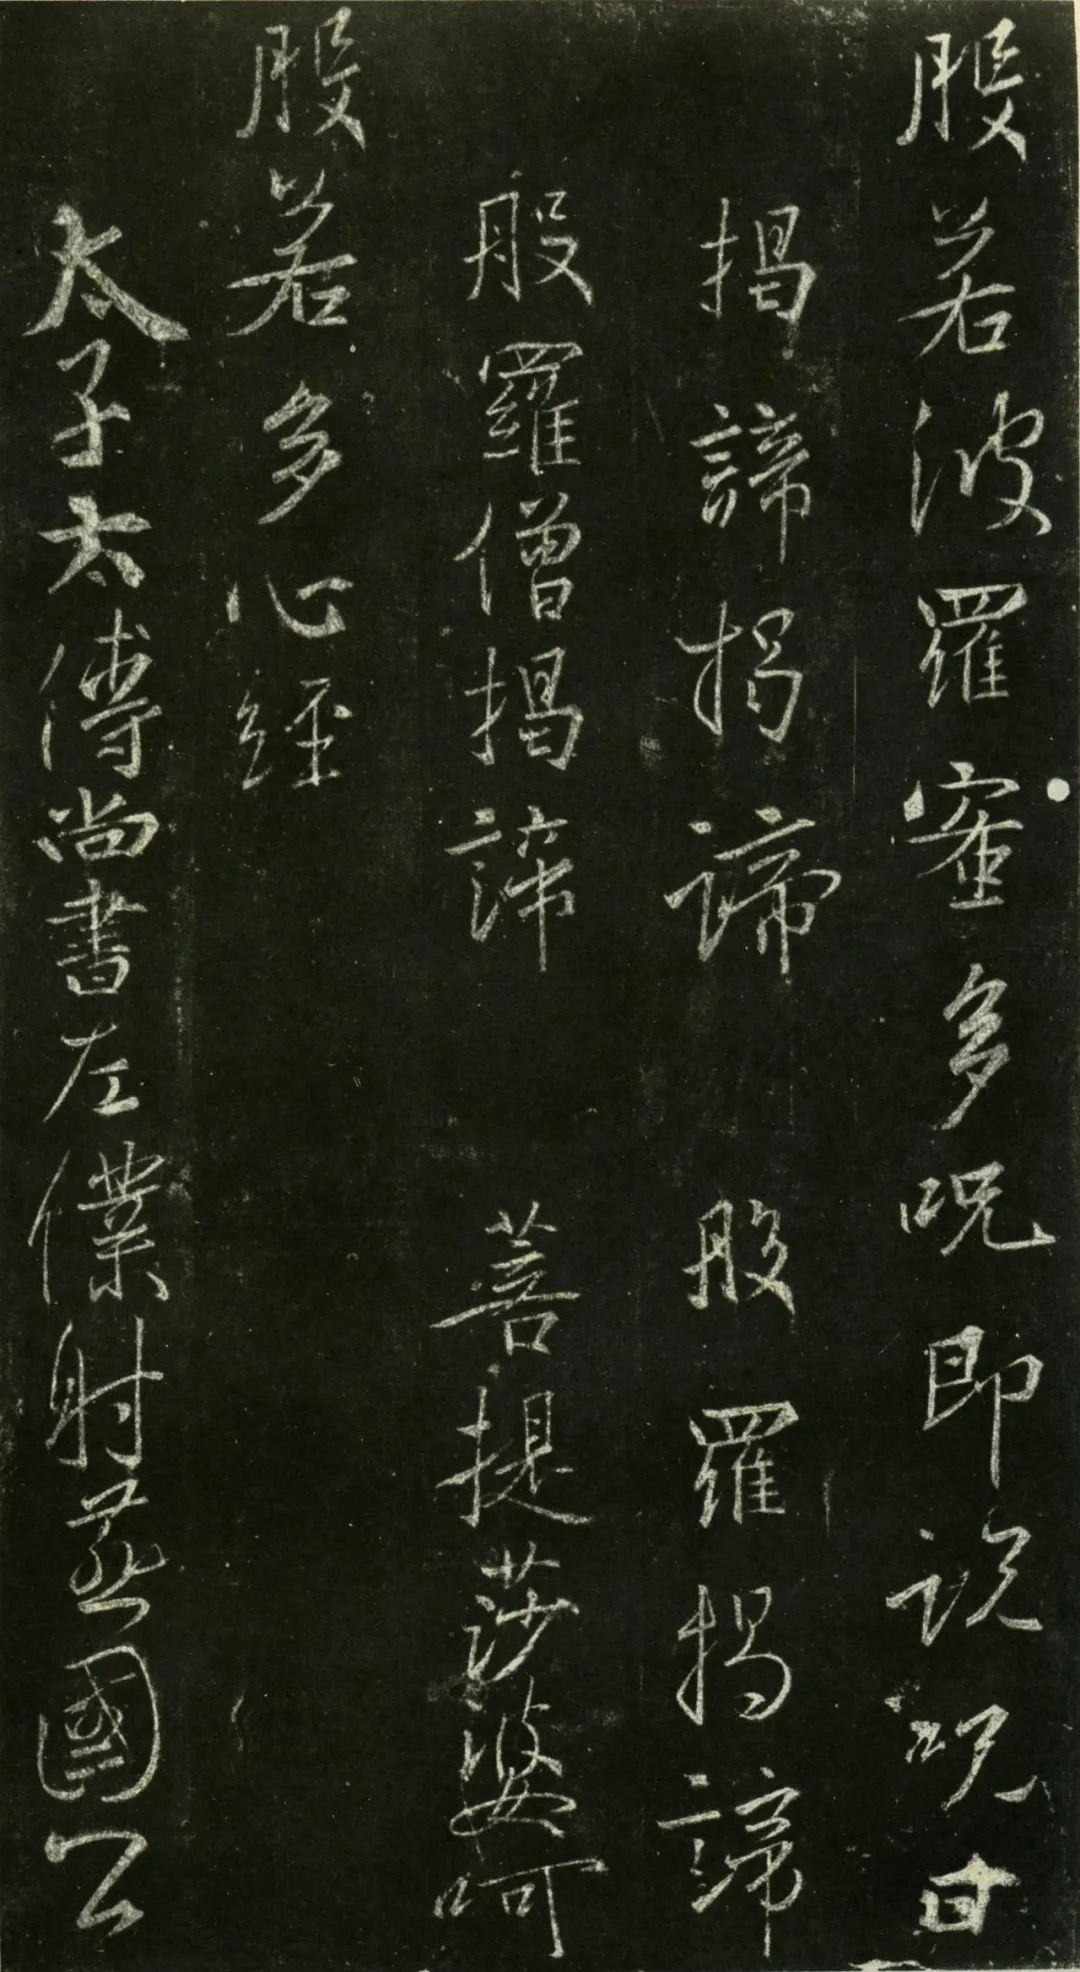 般若波羅蜜多咒即說咒曰
揭諦揭諦 般羅揭諦
般羅僧揭諦 菩提莎婆呵
般若多心經
太子太傅尚書左僕射燕國公